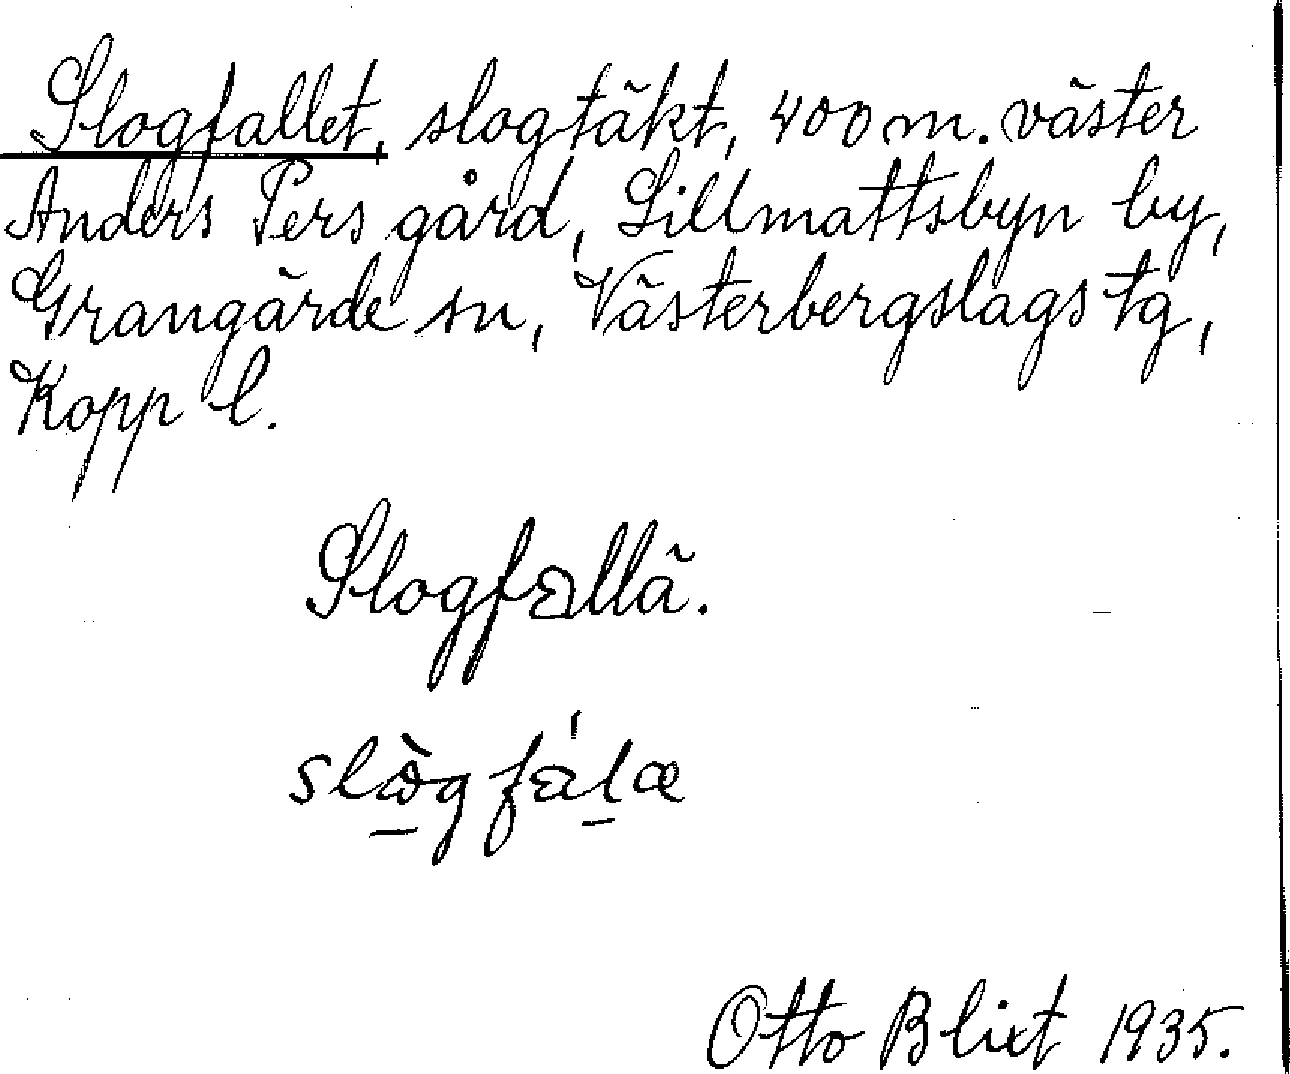 Slogfallet, slogtäkt, 400 m. väster
Anders Pers gård, Lillmattsbyn by,
Grangärde sn, Västerbergslags tg,
Kopp l.
Slogfallä.
Otto Blixt 1935.